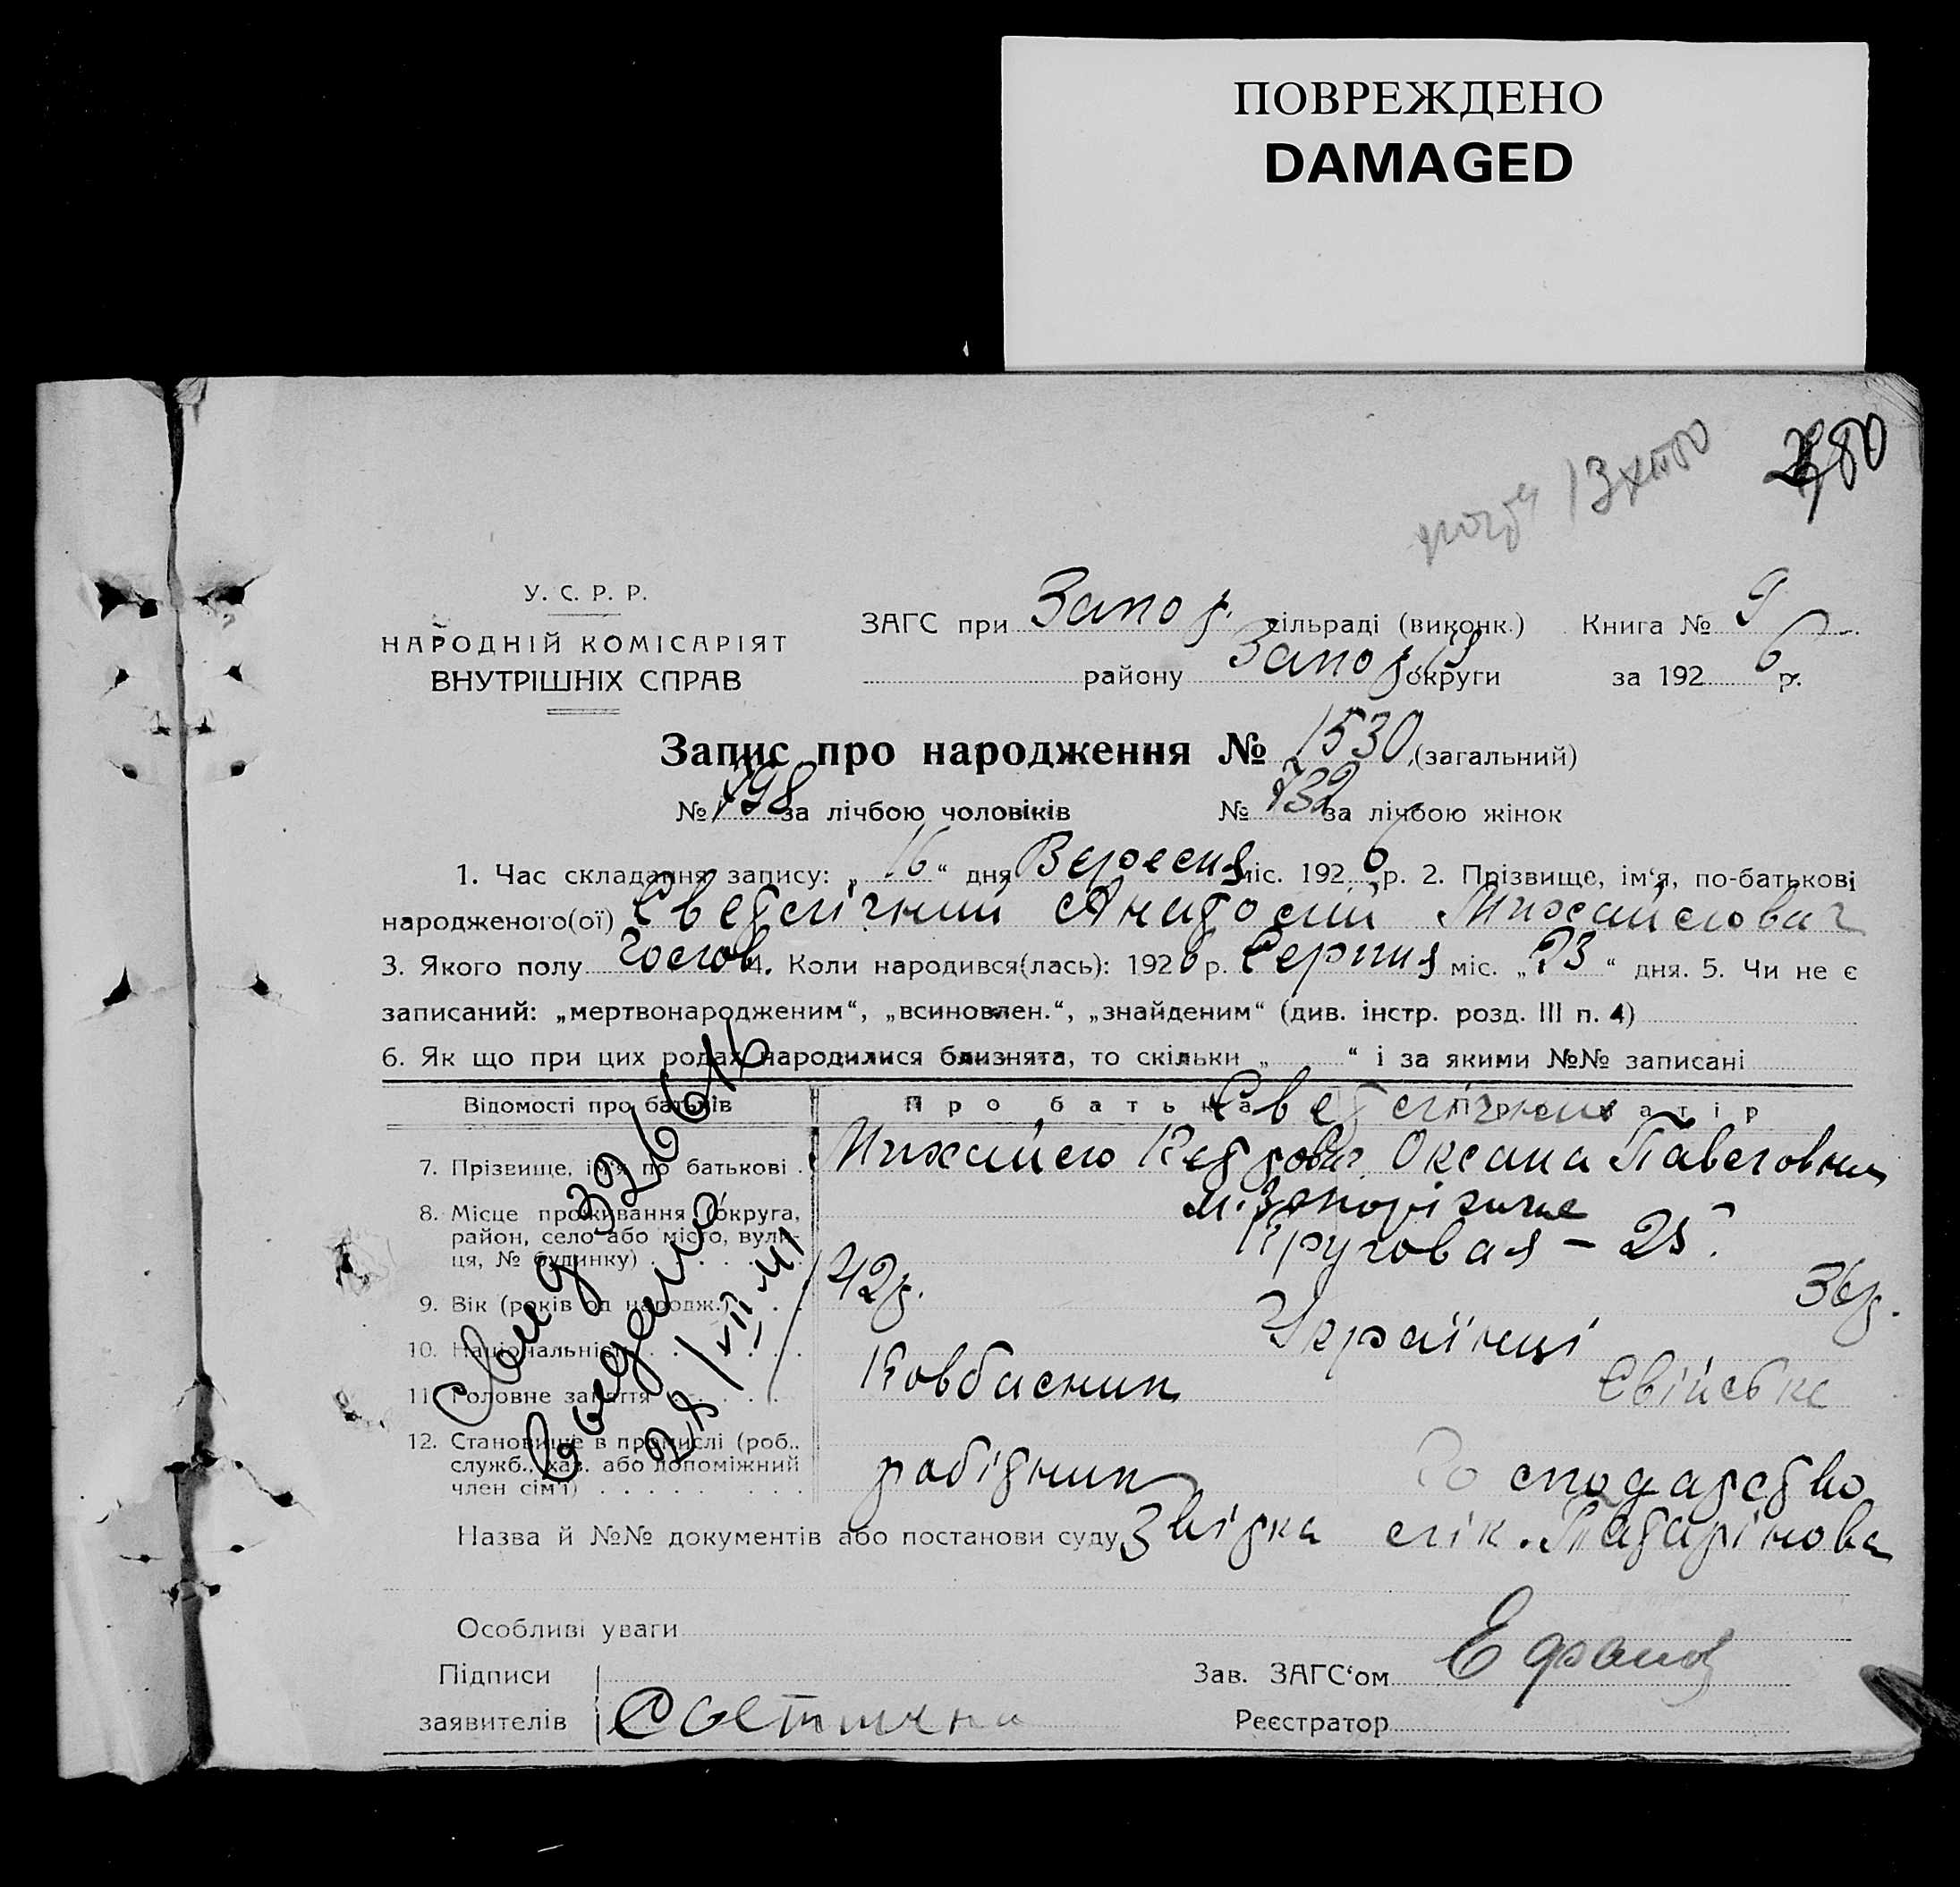 ПОВРЕЖДЕНО
DAMAGED
780
13 XII 80
У. С. Р. Р.
НАРОДНІЙ КОМІСАРІЯТ
ВНУТРІШНІХ СПРАВ
ЗАГС при Запор. сільраді (виконк.) Книга № 9
району Запоріз округи за 1926 р.
Запис про народження № 1530 (загальний)
№ 798 за лічбою чоловіків № 732 за лічбою жінок
1. Час складання запису: „16“ дня Вересня міс. 1926 р. 2. Прізвище, ім‘я, по-батькові
народженого(ої) Светлічний Анатолій Михайлович
3. Якого полу Чолов. 4. Коли народився(лась): 1926 р. Серпня міс. „23“ дня. 5. Чи не є
записаний: „мертвонародженим“, „всиновлен.“, „знайденим“ (див. інстр. розд. III п. 4)
6. Як що при цих родах народилися близнята, то скільки „ “ і за якими №№ записані
Відомості про батьків Про батька Про матір
Светлічни
7. Прізвище, ім‘я по батькові Михайло Петрович Оксана Павловна
8. Місце проживання (округа, район, село або місто, вулиця, № будинку) м. Запоріжже
Круговая – 25.
9. Вік (років од народж.) 42 р. 36 р.
10. Національність Українці
11. Головне заняття Ковбасник Свійське
12. Становище в промислі (роб., служб., хаз. або допоміжний член сім‘ї) робітник Господарство
Назва й №№ документів або постанови суду Звідка лік. Татарінова
Особливі уваги
Підписи
заявителів
Зав. ЗАГС‘ом
Реєстратор
326616
28/VII 41